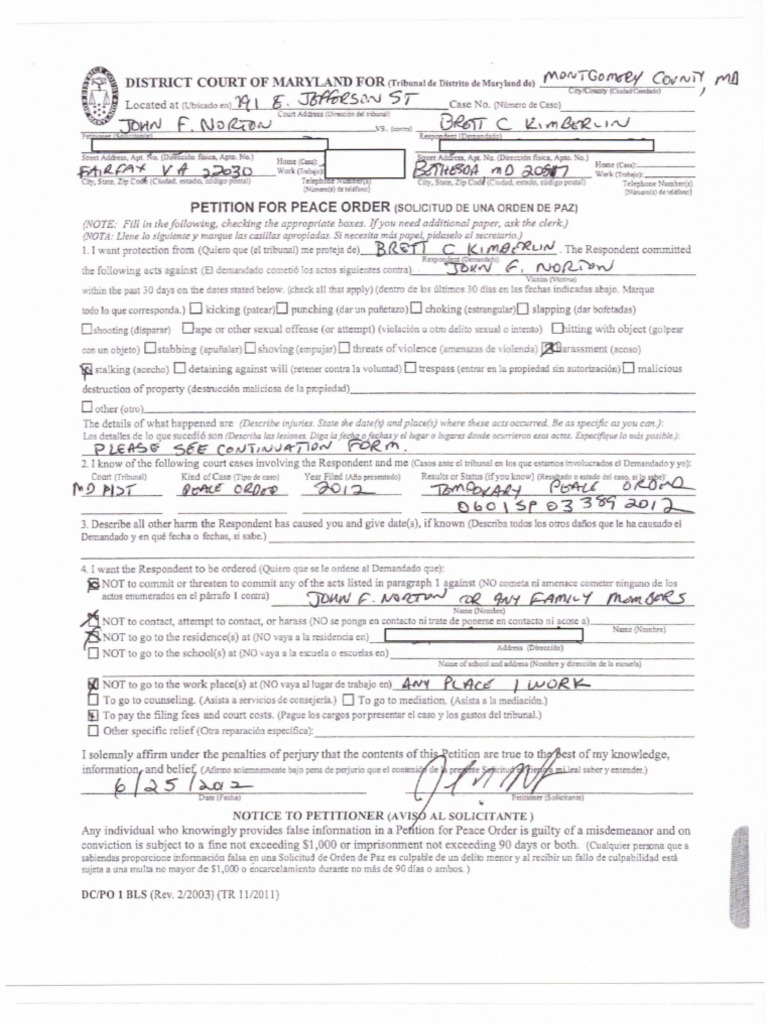 DISTRICT COURT OF MARYLAND FOR (Tribunal de Distrito de Maryland de) MONTGOMERY COUNTY, MD
City/County (Ciudad/Condado)
Located at (Ubicado en) 191 E. JEFFERSON ST Case No. (Número de Caso)
Court Address (Dirección del tribunal)
JOHN F. NORTON vs. (contra) BRETT C KIMBERLIN
Petitioner (Solicitante) Respondent (Demandado)
Street Address, Apt. No. (Dirección física, Apto. No.) Home (Casa): Street Address, Apt. No. (Dirección física, Apto. No.) Home (Casa):
FAIRFAX VA 22030 Work (Trabajo): BETHESDA MD 20817 Work (Trabajo):
City, State, Zip Code (Ciudad, estado, código postal) Telephone Number(s) City, State, Zip Code (Ciudad, estado, código postal) Telephone Number(s)
(Número(s) de teléfono) (Número(s) de teléfono)
PETITION FOR PEACE ORDER (SOLICITUD DE UNA ORDEN DE PAZ)
(NOTE: Fill in the following, checking the appropriate boxes. If you need additional paper, ask the clerk.)
(NOTA: Llene lo siguiente y marque las casillas apropiadas. Si necesita más papel, pídaselo al secretario.)
1. I want protection from (Quiero que (el tribunal) me proteja de) BRETT C KIMBERLIN. The Respondent committed
Respondent (Demandado)
the following acts against (El demandado cometió los actos siguientes contra) JOHN F. NORTON
Victim (Víctima)
within the past 30 days on the dates stated below. (check all that apply) (dentro de los últimos 30 días en las fechas indicadas abajo. Marque
todo lo que corresponda.) kicking (patear) punching (dar un puñetazo) choking (estrangular) slapping (dar bofetadas)
shooting (disparar) ape or other sexual offense (or attempt) (violación u otro delito sexual o intento) hitting with object (golpear
con un objeto) stabbing (apuñalar) shoving (empujar) threats of violence (amenazas de violencia) harassment (acoso)
stalking (acecho) detaining against will (retener contra la voluntad) trespass (entrar en la propiedad sin autorización) malicious
destruction of property (destrucción maliciosa de la propiedad)
other (otro)
The details of what happened are (Describe injuries. State the date(s) and place(s) where these acts occurred. Be as specific as you can.):
Los detalles de lo que sucedió son (Describa las lesiones. Diga la fecha o fechas y el lugar o lugares donde ocurrieron esos actos. Especifique lo más posible.):
PLEASE SEE CONTINUATION FORM.
2. I know of the following court cases involving the Respondent and me (Casos ante el tribunal en los que estamos involucrados el Demandado y yo):
Court (Tribunal) Kind of Case (Tipo de caso) Year Filed (Año presentado) Results or Status (if you know) (Resultado o estado del caso, si lo sabe):
MD DIST PEACE ORDER 2012 TEMPORARY PEACE ORDER
0601SP 03389 2012
3. Describe all other harm the Respondent has caused you and give date(s), if known (Describa todos los otros daños que le ha causado el
Demandado y en qué fecha o fechas, si sabe.)
4. I want the Respondent to be ordered (Quiero que se le ordene al Demandado que):
NOT to commit or threaten to commit any of the acts listed in paragraph 1 against (NO cometa ni amenace cometer ninguno de los
actos enumerados en el párrafo 1 contra) JOHN F. NORTON OR ANY FAMILY MEMBERS
Name (Nombre)
NOT to contact, attempt to contact, or harass (NO se ponga en contacto ni trate de ponerse en contacto ni acose a)
Name (Nombre)
NOT to go to the residence(s) at (NO vaya a la residencia en)
Address (Dirección)
NOT to go to the school(s) at (NO vaya a la escuela o escuelas en)
Name of school and address (Nombre y dirección de la escuela)
NOT to go to the work place(s) at (NO vaya al lugar de trabajo en) ANY PLACE I WORK
To go to counseling. (Asista a servicios de consejería.) To go to mediation. (Asista a la mediación.)
To pay the filing fees and court costs. (Pague los cargos por presentar el caso y los gastos del tribunal.)
Other specific relief (Otra reparación específica):
I solemnly affirm under the penalties of perjury that the contents of this Petition are true to the best of my knowledge,
information, and belief. (Afirmo solemnemente bajo pena de perjurio que el contenido de la presente Solicitud mi leal saber y entender.)
6/25/2012
Date (Fecha) Petitioner (Solicitante)
NOTICE TO PETITIONER (AVISO AL SOLICITANTE)
Any individual who knowingly provides false information in a Petition for Peace Order is guilty of a misdemeanor and on
conviction is subject to a fine not exceeding $1,000 or imprisonment not exceeding 90 days or both. (Cualquier persona que a
sabiendas proporcione información falsa en una Solicitud de Orden de Paz es culpable de un delito menor y al recibir un fallo de culpabilidad está
sujeta a una multa no mayor de $1,000 o encarcelamiento durante no más de 90 días o ambos.)
DC/PO 1 BLS (Rev. 2/2003) (TR 11/2011)